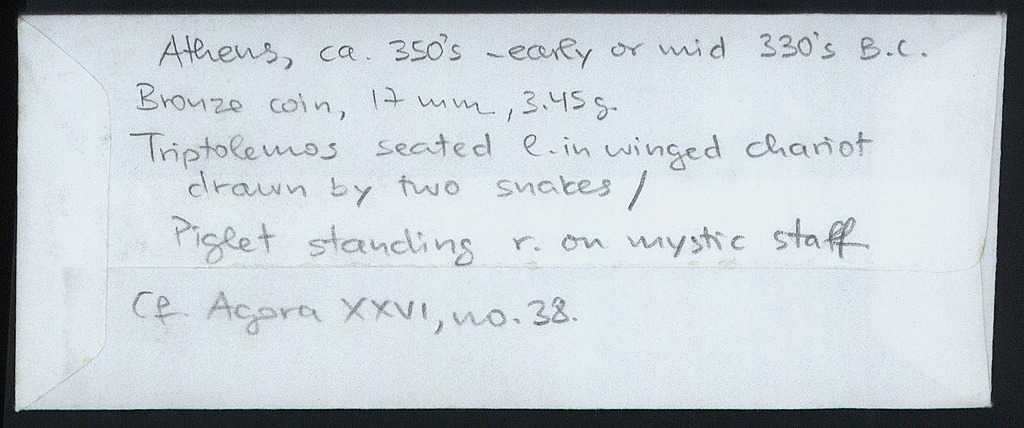 Athens, ca. 350's - early or mid 330's B.C.
Bronze coin, 17 mm, 3.45 g.
Triptolemos seated l. in winged chariot
drawn by two snakes /
Piglet standing r. on mystic staff
Cf. Agora XXVI, no. 38.